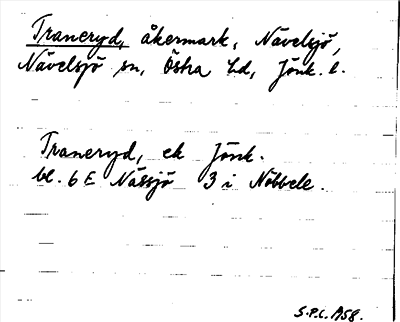 Traneryd, åkermark, Nävelsjö,
Nävelsjö sn, Östra hd, Jönk. l.
Traneryd, ek Jönk.
bl. 6 E Nässjö 3 i Nöbbele.
S.P.C. A58.